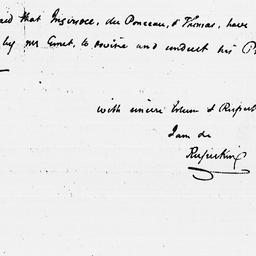 that Ingersoll, du Ponceau, & Thomas, have
by Mr Emet, to advise and conduct his
with sincere Esteem & Respect
I am dr
Rufus King